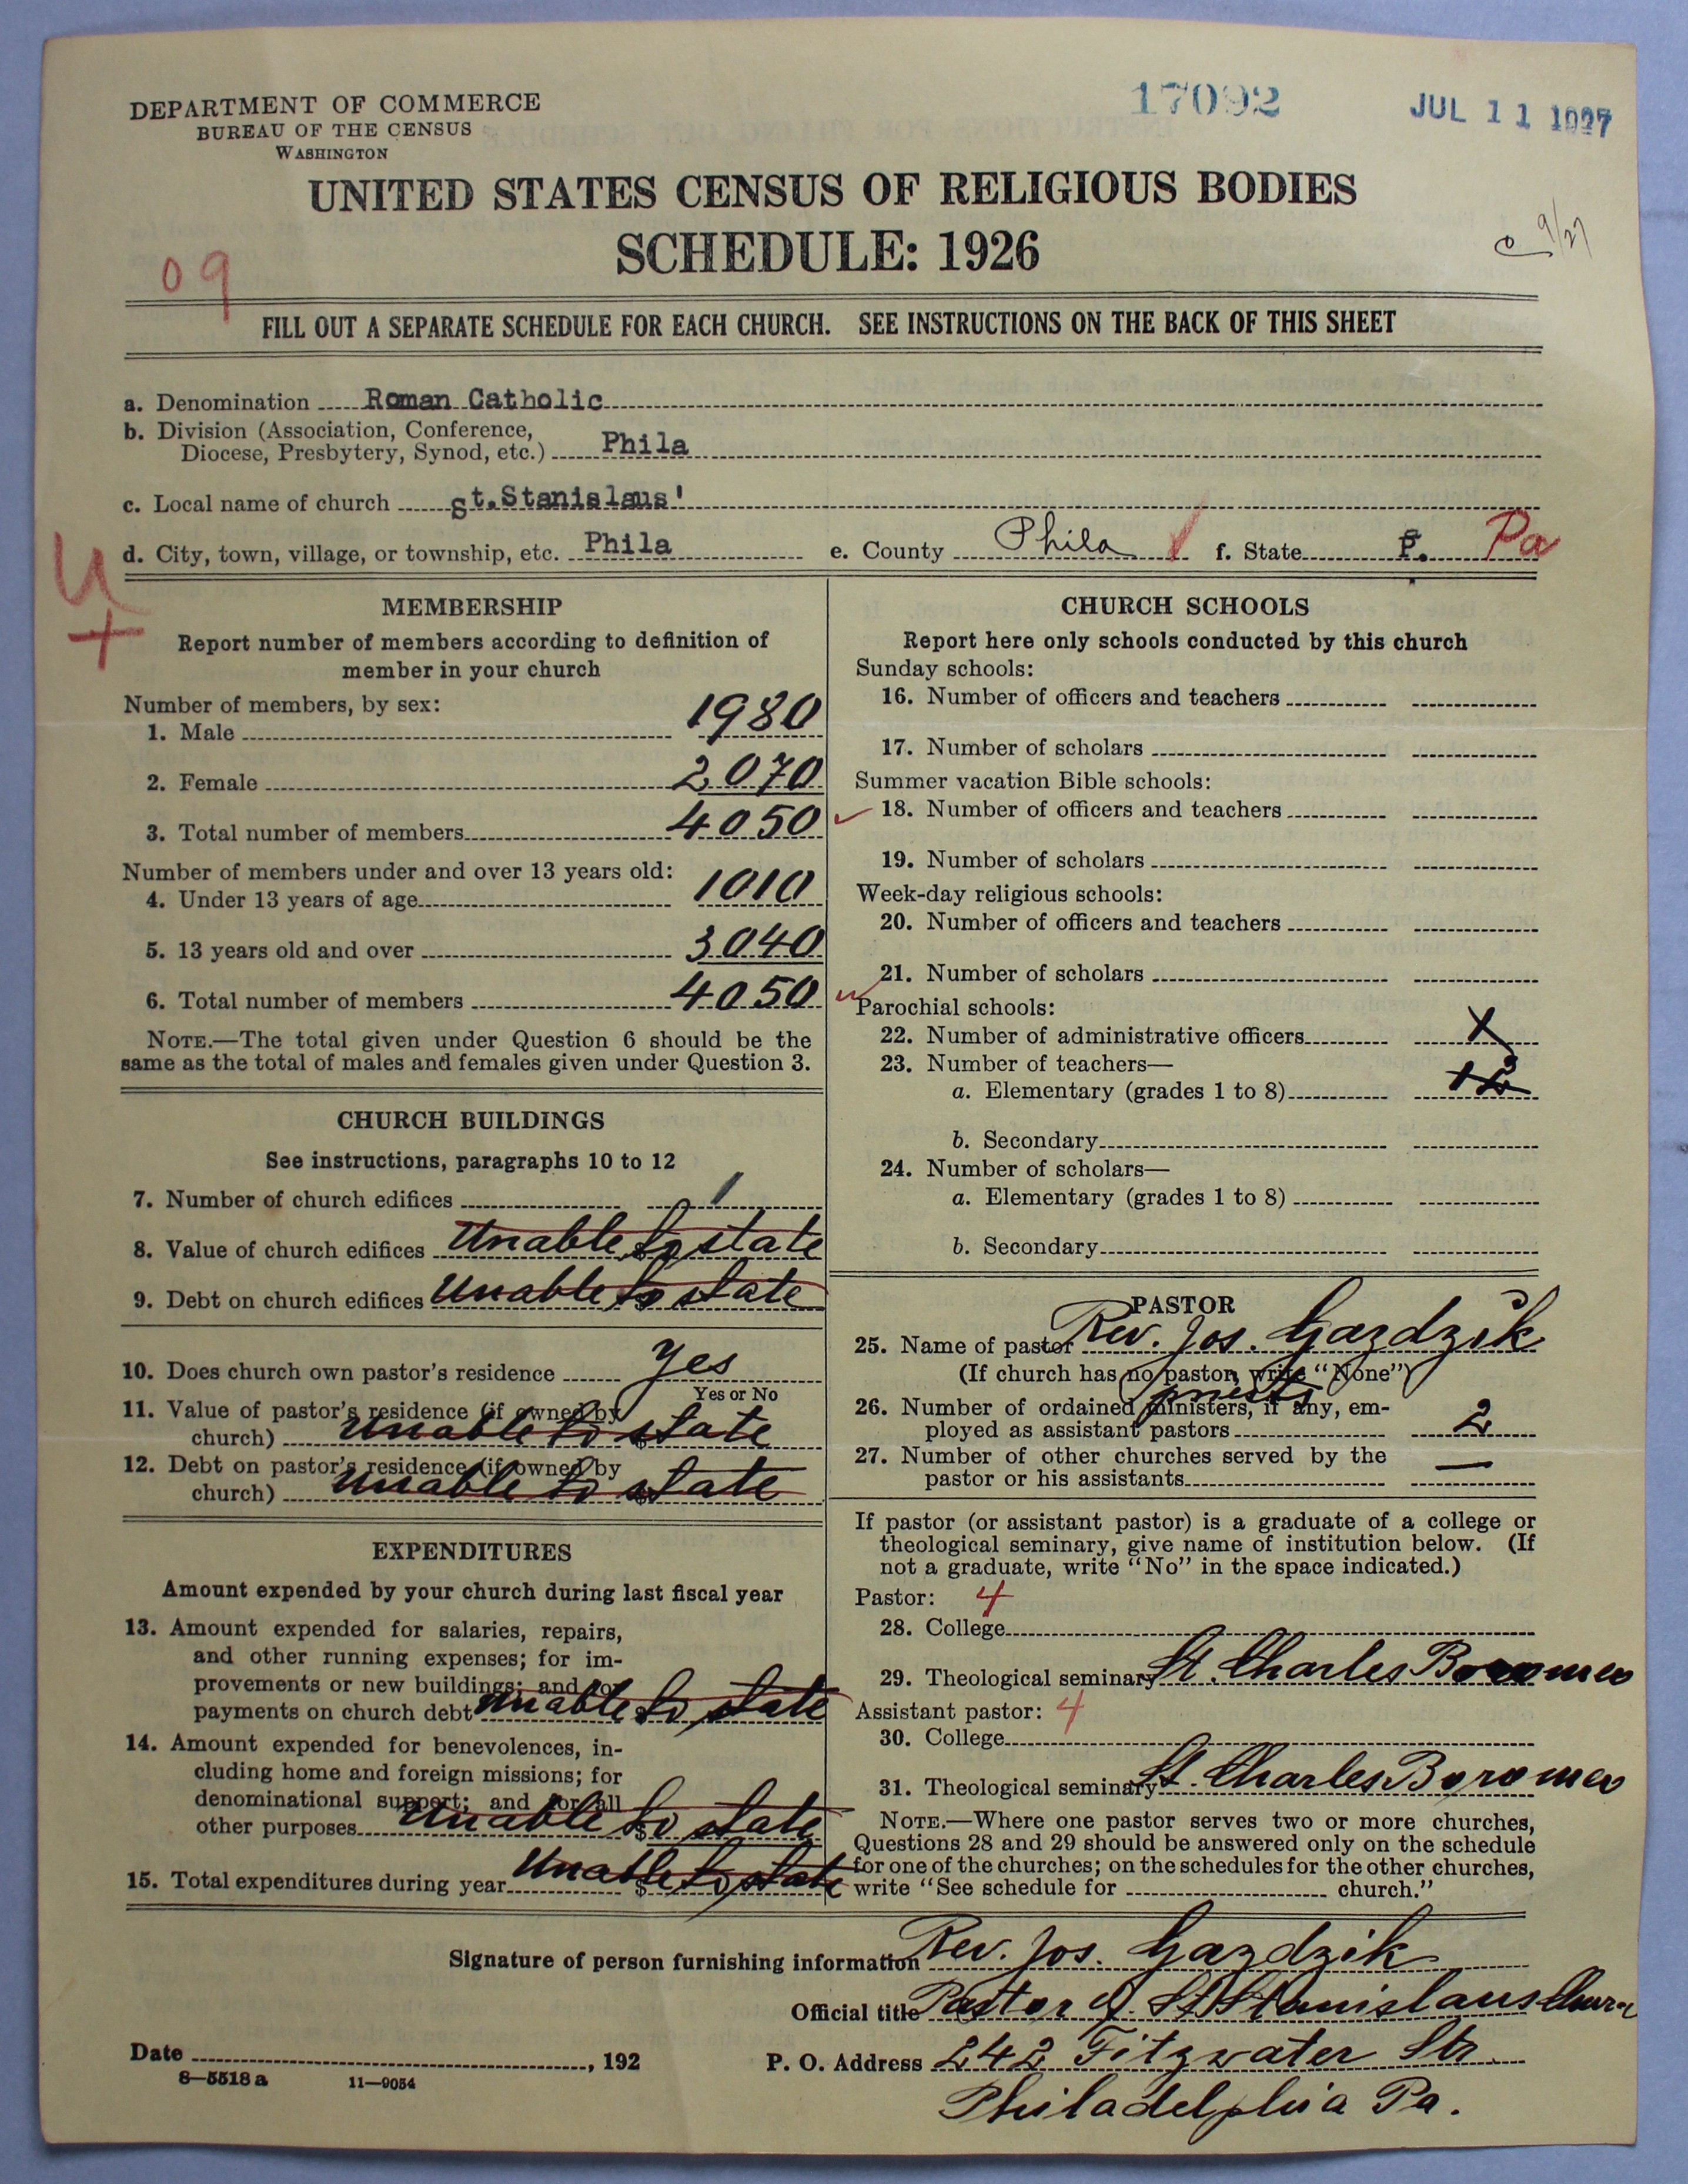 DEPARTMENT OF COMMERCE
BUREAU OF THE CENSUS
WASHINGTON
17092
JUL 11 1927
UNITED STATES CENSUS OF RELIGIOUS BODIES
SCHEDULE: 1926
9/27
09
FILL OUT A SEPARATE SCHEDULE FOR EACH CHURCH. SEE INSTRUCTIONS ON THE BACK OF THIS SHEET
a. Denomination Roman Catholic
b. Division (Association, Conference,
Diocese, Presbytery, Synod, etc.) Phila
c. Local name of church St.Stanislaus'
d. City, town, village, or township, etc. Phila e. County Phila f. State P. Pa
U
+
MEMBERSHIP
Report number of members according to definition of
member in your church
Number of members, by sex:
1. Male 1980
2. Female 2070
3. Total number of members 4050
Number of members under and over 13 years old:
4. Under 13 years of age 1010
5. 13 years old and over 3040
6. Total number of members 4050
NOTE.—The total given under Question 6 should be the
same as the total of males and females given under Question 3.
CHURCH BUILDINGS
See instructions, paragraphs 10 to 12
7. Number of church edifices 1
8. Value of church edifices $ Unable to state
9. Debt on church edifices $ Unable to state
10. Does church own pastor's residence Yes
Yes or No
11. Value of pastor's residence (if owned by
church) $ Unable to state
12. Debt on pastor's residence (if owned by
church) $ Unable to state
EXPENDITURES
Amount expended by your church during last fiscal year
13. Amount expended for salaries, repairs,
and other running expenses; for im-
provements or new buildings; and for
payments on church debt $ Unable to state
14. Amount expended for benevolences, in-
cluding home and foreign missions; for
denominational support; and for all
other purposes $ Unable to state
15. Total expenditures during year $ Unable to state
CHURCH SCHOOLS
Report here only schools conducted by this church
Sunday schools:
16. Number of officers and teachers
17. Number of scholars
Summer vacation Bible schools:
18. Number of officers and teachers
19. Number of scholars
Week-day religious schools:
20. Number of officers and teachers
21. Number of scholars
Parochial schools:
22. Number of administrative officers X
23. Number of teachers—
a. Elementary (grades 1 to 8) 12
b. Secondary
24. Number of scholars—
a. Elementary (grades 1 to 8)
b. Secondary
PASTOR
25. Name of pastor Rev. Jos. Gazdzik
(If church has no pastor, write "None")
priests
26. Number of ordained ministers, if any, em-
ployed as assistant pastors 2
27. Number of other churches served by the
pastor or his assistants —
If pastor (or assistant pastor) is a graduate of a college or
theological seminary, give name of institution below. (If
not a graduate, write "No" in the space indicated.)
Pastor: 4
28. College
29. Theological seminary St. Charles Boromeo
Assistant pastor: 4
30. College
31. Theological seminary St. Charles Boromeo
NOTE.—Where one pastor serves two or more churches,
Questions 28 and 29 should be answered only on the schedule
for one of the churches; on the schedules for the other churches,
write "See schedule for church."
Signature of person furnishing information Rev. Jos. Gazdzik
Official title Pastor of St Stanislaus
Date , 192
P. O. Address 242 Fitzwater Str.
8—5518 a 11—9054
Philadelphia Pa.